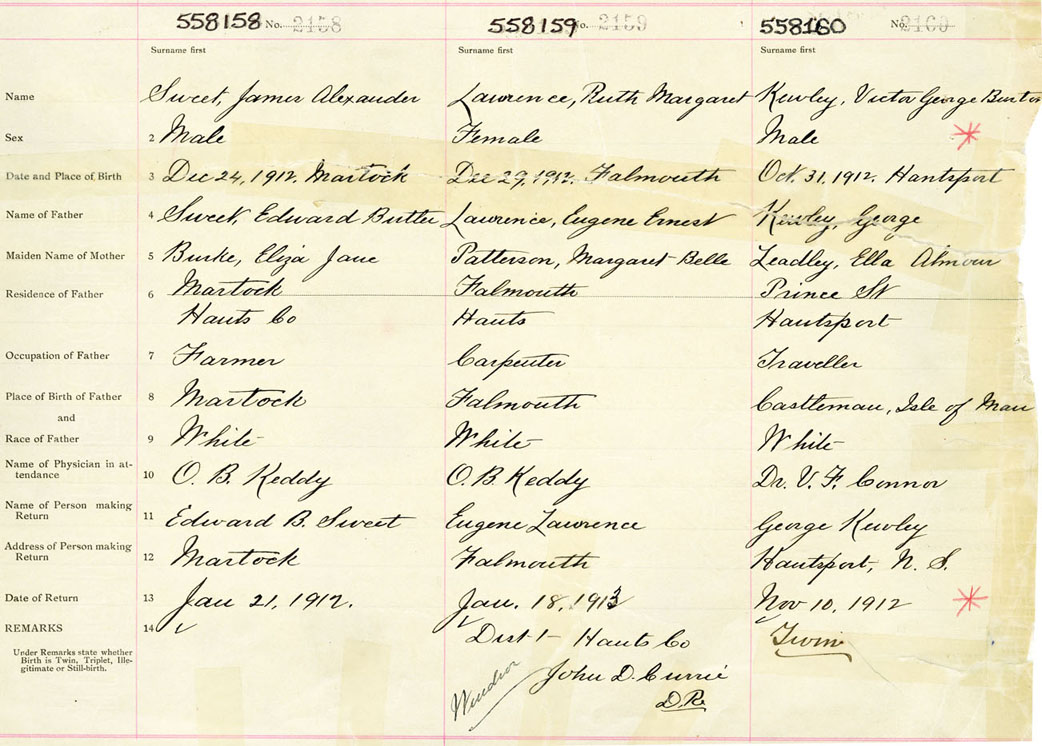 558158 No. 2158 558159 No. 2159 558160 No. 2160
Surname first Surname first Surname first
Name Sweet, James Alexander Lawrence, Ruth Margaret Kewley, Victor George Burton
Sex 2 Male Female Male
Date and Place of Birth 3 Dec 24, 1912. Martock Dec 29, 1912. Falmouth Oct. 31. 1912. Hantsport
Name of Father 4 Sweet, Edward Butler Lawrence, Eugene Ernest Kewley, George
Maiden Name of Mother 5 Burke, Eliza Jane Patterson, Margaret Belle Leadley, Ella
Residence of Father 6 Martock Falmouth Prince St
Hants Co Hants Hantsport
Occupation of Father 7 Farmer Carpenter Traveller
Place of Birth of Father 8 Martock Falmouth Castleman, Isle of Man
and
Race of Father 9 White White White
Name of Physician in at-
tendance 10 O. B. Keddy O. B Keddy Dr. V. F. Connor
Name of Person making
Return 11 Edward B. Sweet Eugene Lawrence George Kewley
Address of Person making
Return 12 Martock Falmouth Hantsport, N. S.
Date of Return 13 Jan 21, 1912. Jan. 18, 1913 Nov 10, 1912
REMARKS 14 Dist 1 - Hants Co Twin
Under Remarks state whether
Birth is Twin, Triplet, Ille-
gitimate or Still-birth.
Windsor John D. Currie
D.R.